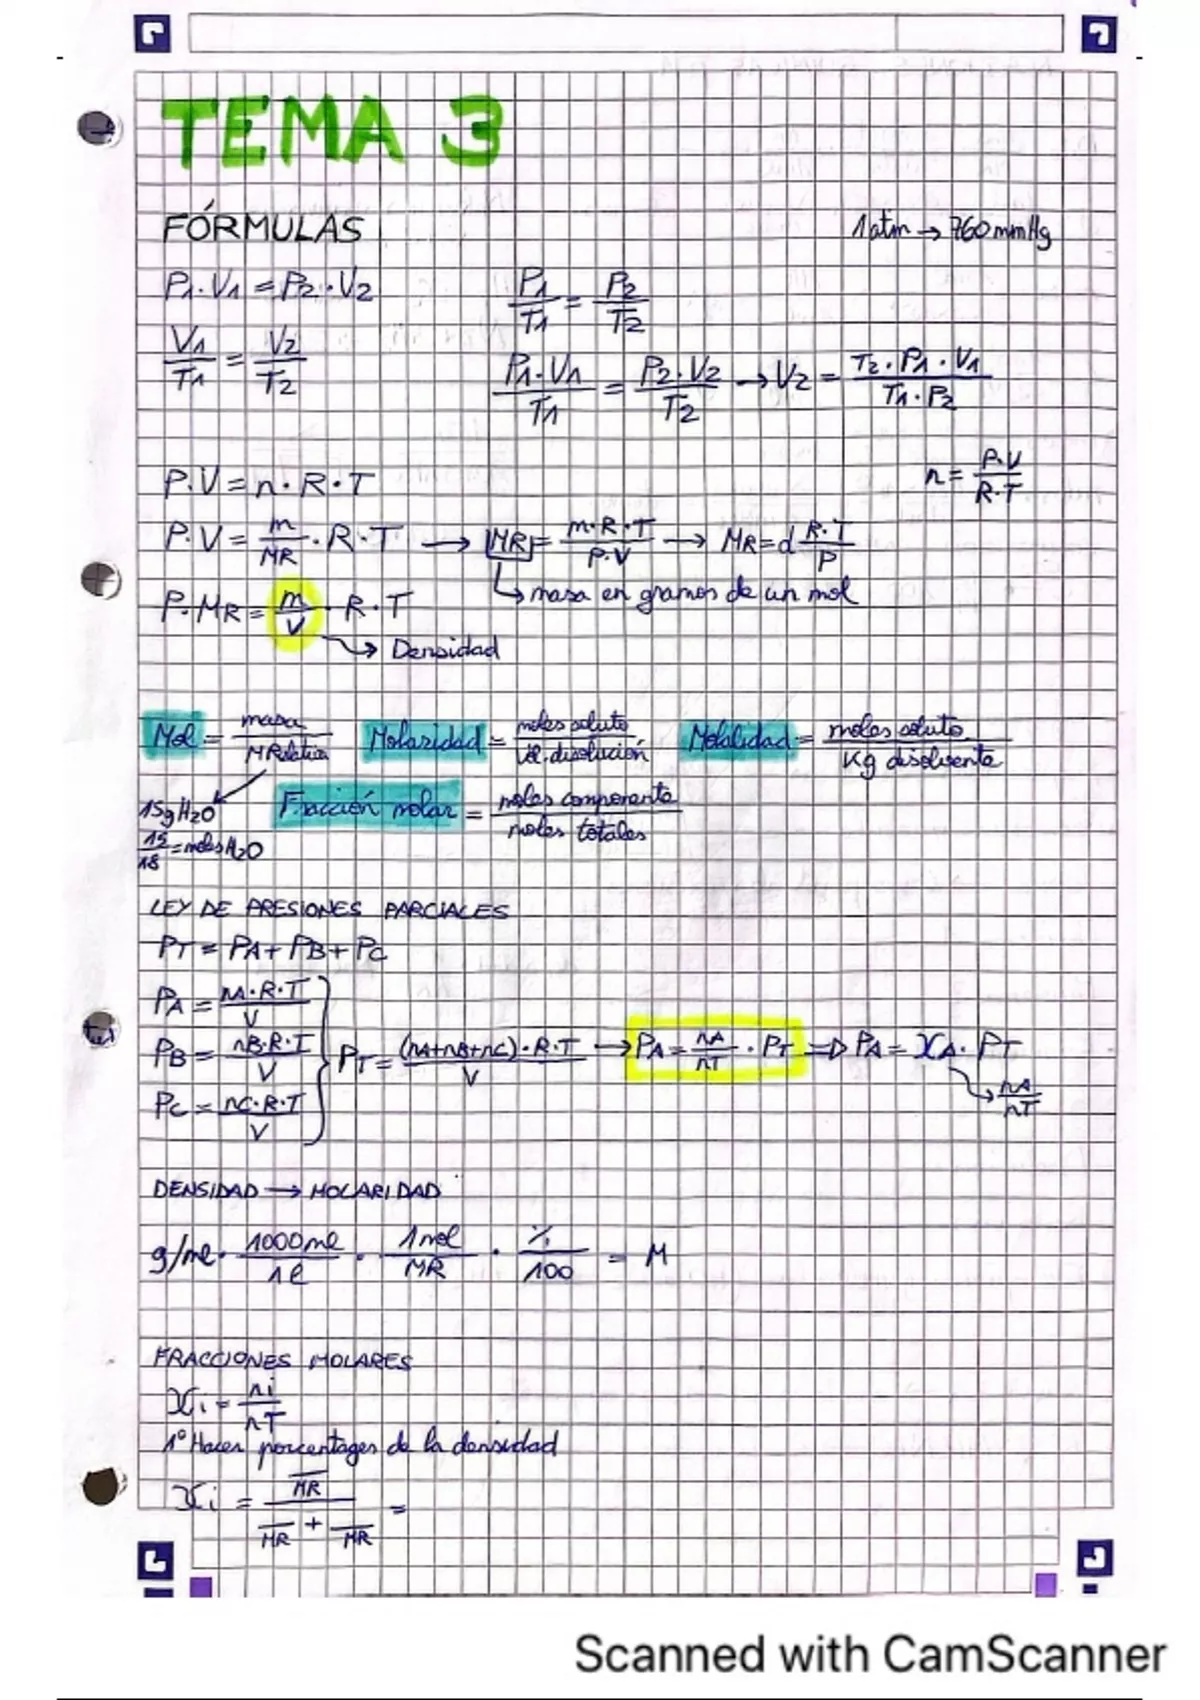 TEMA 3
FÓRMULAS
1 atm → 760 mmHg
P1·V1 = P2·V2
P1/T1 = P2/T2
V1/T1 = V2/T2
P1·V1/T1 = P2·V2/T2 → V2 = T2·P1·V1/T1·P2
P·V = n·R·T
n = P·V/R·T
P·V = m/MR·R·T → MR = m·R·T/P·V → MR = d R·T/P
masa en gramos de un mol
P·MR = m/V·R·T
→ Densidad
Mol = masa/MRelativa
Molaridad = moles soluto/Vol. disolución
Molalidad = moles soluto/Kg disolvente
15g H2O
15/18 = moles H2O
Fracción molar = moles componente/moles totales
LEY DE PRESIONES PARCIALES
PT = PA + PB + PC
PA = nA·R·T/V
PB = nB·R·T/V
PC = nC·R·T/V
PT = (nA+nB+nC)·R·T/V → PA = nA/nT · PT ⇒ PA = XA · PT
→ nA/nT
DENSIDAD → MOLARIDAD
g/ml · 1000ml/1l · 1mol/MR · %/100 = M
FRACCIONES MOLARES
Xi = ni/nT
1º Hacer porcentages de la densidad
Xi = —/MR / —/MR + —/MR =
Scanned with CamScanner